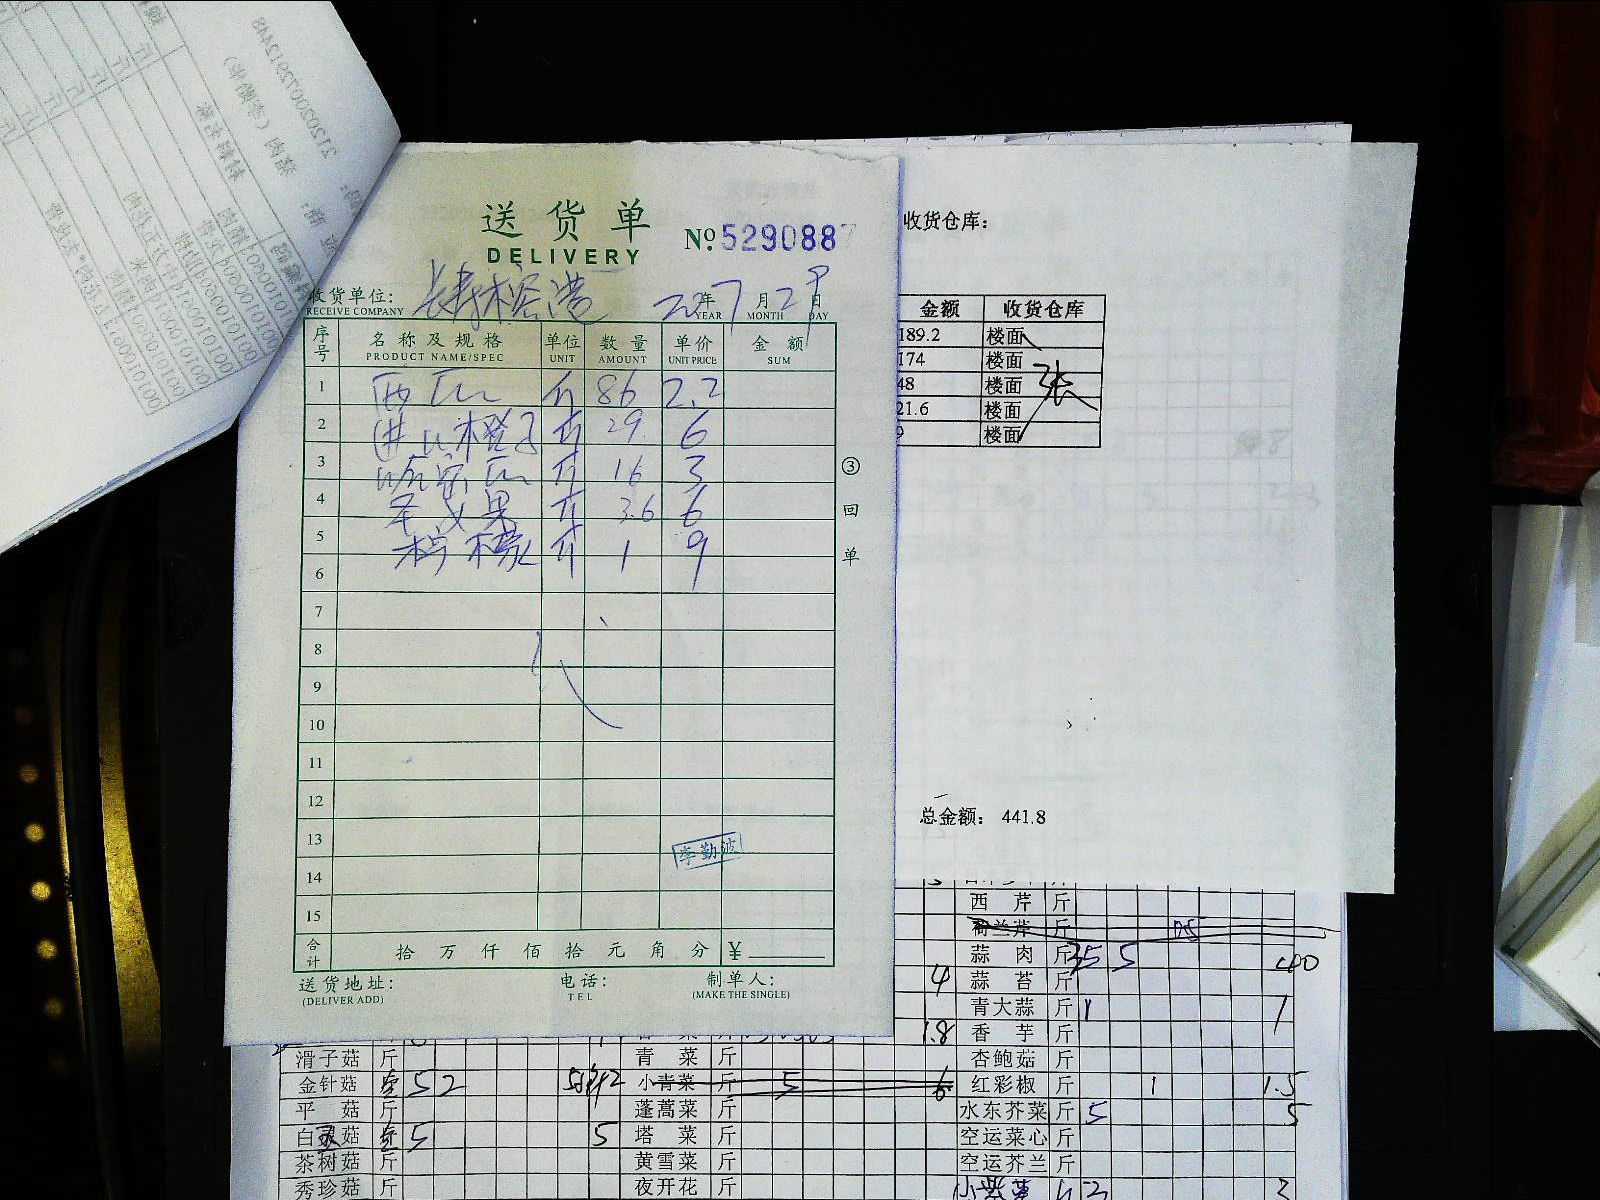 送货单
DELIVERY
№ 5290887
收货单位:
RECEIVE COMPANY
年 7 月 29 日
YEAR MONTH DAY
序号 名称及规格 单位 数量 单价 金额
PRODUCT NAME/SPEC UNIT AMOUNT UNIT PRICE SUM
1 西瓜 斤 86 2.2
2 进口橙子 斤 29 6
3 哈密瓜 斤 16 3
4 圣女果 斤 3.6 6
5 柠檬 斤 1 9
6
7
8
9
10
11
12
13
14
15
李勤波
合计 拾 万 仟 佰 拾 元 角 分 ¥
送货地址: 电话: 制单人:
(DELIVER ADD) TEL (MAKE THE SINGLE)
③ 回单
收货仓库:
金额 收货仓库
189.2 楼面
174 楼面
48 楼面
21.6 楼面
9 楼面
张
总金额: 441.8
西芹 斤
荷兰芹 斤
蒜肉 斤
4 蒜苔 斤
青大蒜 斤 1 1
1.8 香芋 斤
滑子菇 斤 青菜 斤 杏鲍菇 斤
金针菇 52 小青菜 斤 5 6 红彩椒 斤 1 1.5
平菇 斤 蓬蒿菜 斤 水东芥菜 斤 5 5
白灵菇 5 5 塔菜 斤 空运菜心 斤
茶树菇 斤 黄雪菜 斤 空运芥兰 斤
秀珍菇 斤 夜开花 斤